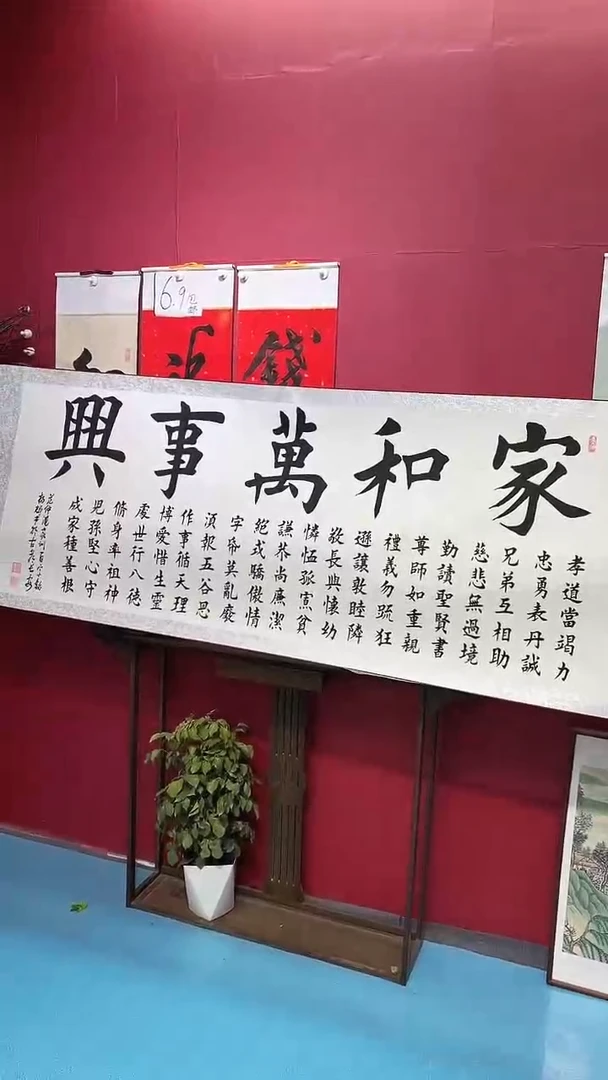 家和萬事興
孝道當竭力
忠勇表丹誠
兄弟互相助
慈悲無過境
勤讀聖賢書
尊師如重親
禮義勿疏狂
遜讓敦睦隣
敬長與懷幼
憐恤孤寡貧
謙恭尚廉潔
絕戒驕傲情
字紙莫亂廢
須報五谷恩
作事循天理
博愛惜生靈
處世行八德
修身率祖神
児孫堅心守
成家種善根
16.9
包邮
錢